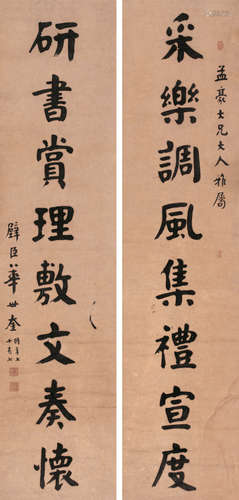 孟豪大兄大人雅屬
采樂調風集禮宣度
研書賞理敷文奏懷
璧臣華世奎
時年七十有七